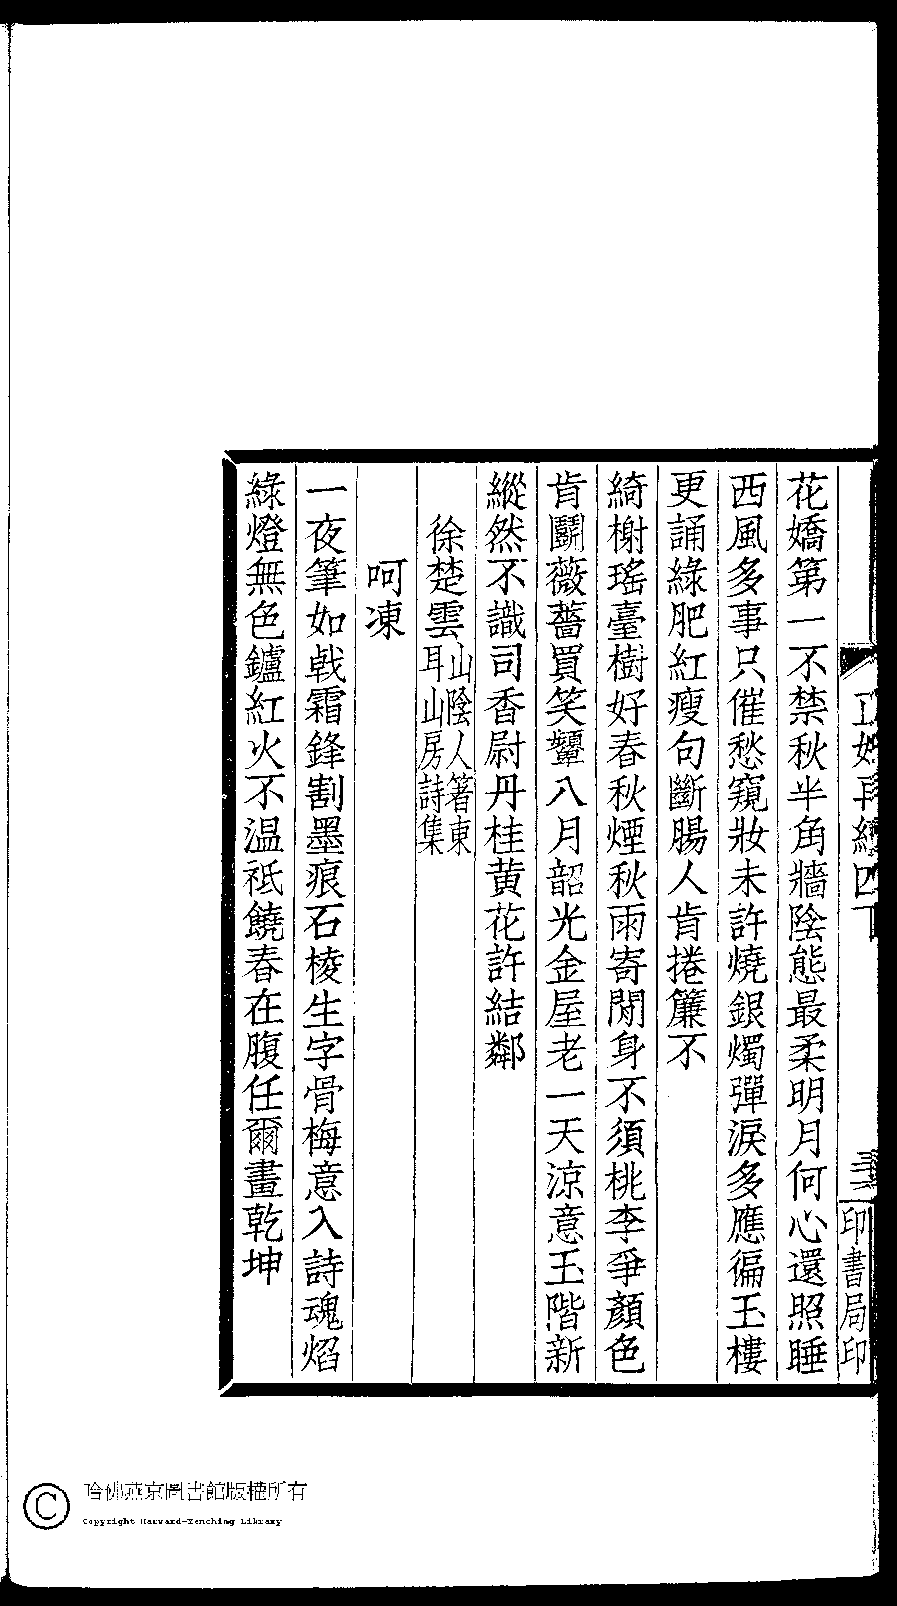 花嬌第一不禁秋半角牆陰態最柔明月何心還照睡
西風多事只催愁窺妝未許燒銀燭彈淚多應徧玉樓
更誦綠肥紅瘦句斷腸人肯捲簾不
綺榭瑤臺樹好春秋煙秋雨寄閒身不須桃李爭顏色
肯鬭薇薔買笑顰八月韶光金屋老一天涼意玉階新
縱然不識司香尉丹桂黄花許結鄰
徐楚雲山陰人箸東
耳山房詩集
呵凍
一夜筆如戟霜鋒割墨痕石棱生字骨梅意入詩魂焰
綠燈無色鑪紅火不温祗饒春在腹任爾畫乾坤
印書局印
哈佛燕京圖書館版權所有
Copyright Harvard-Yenching Library